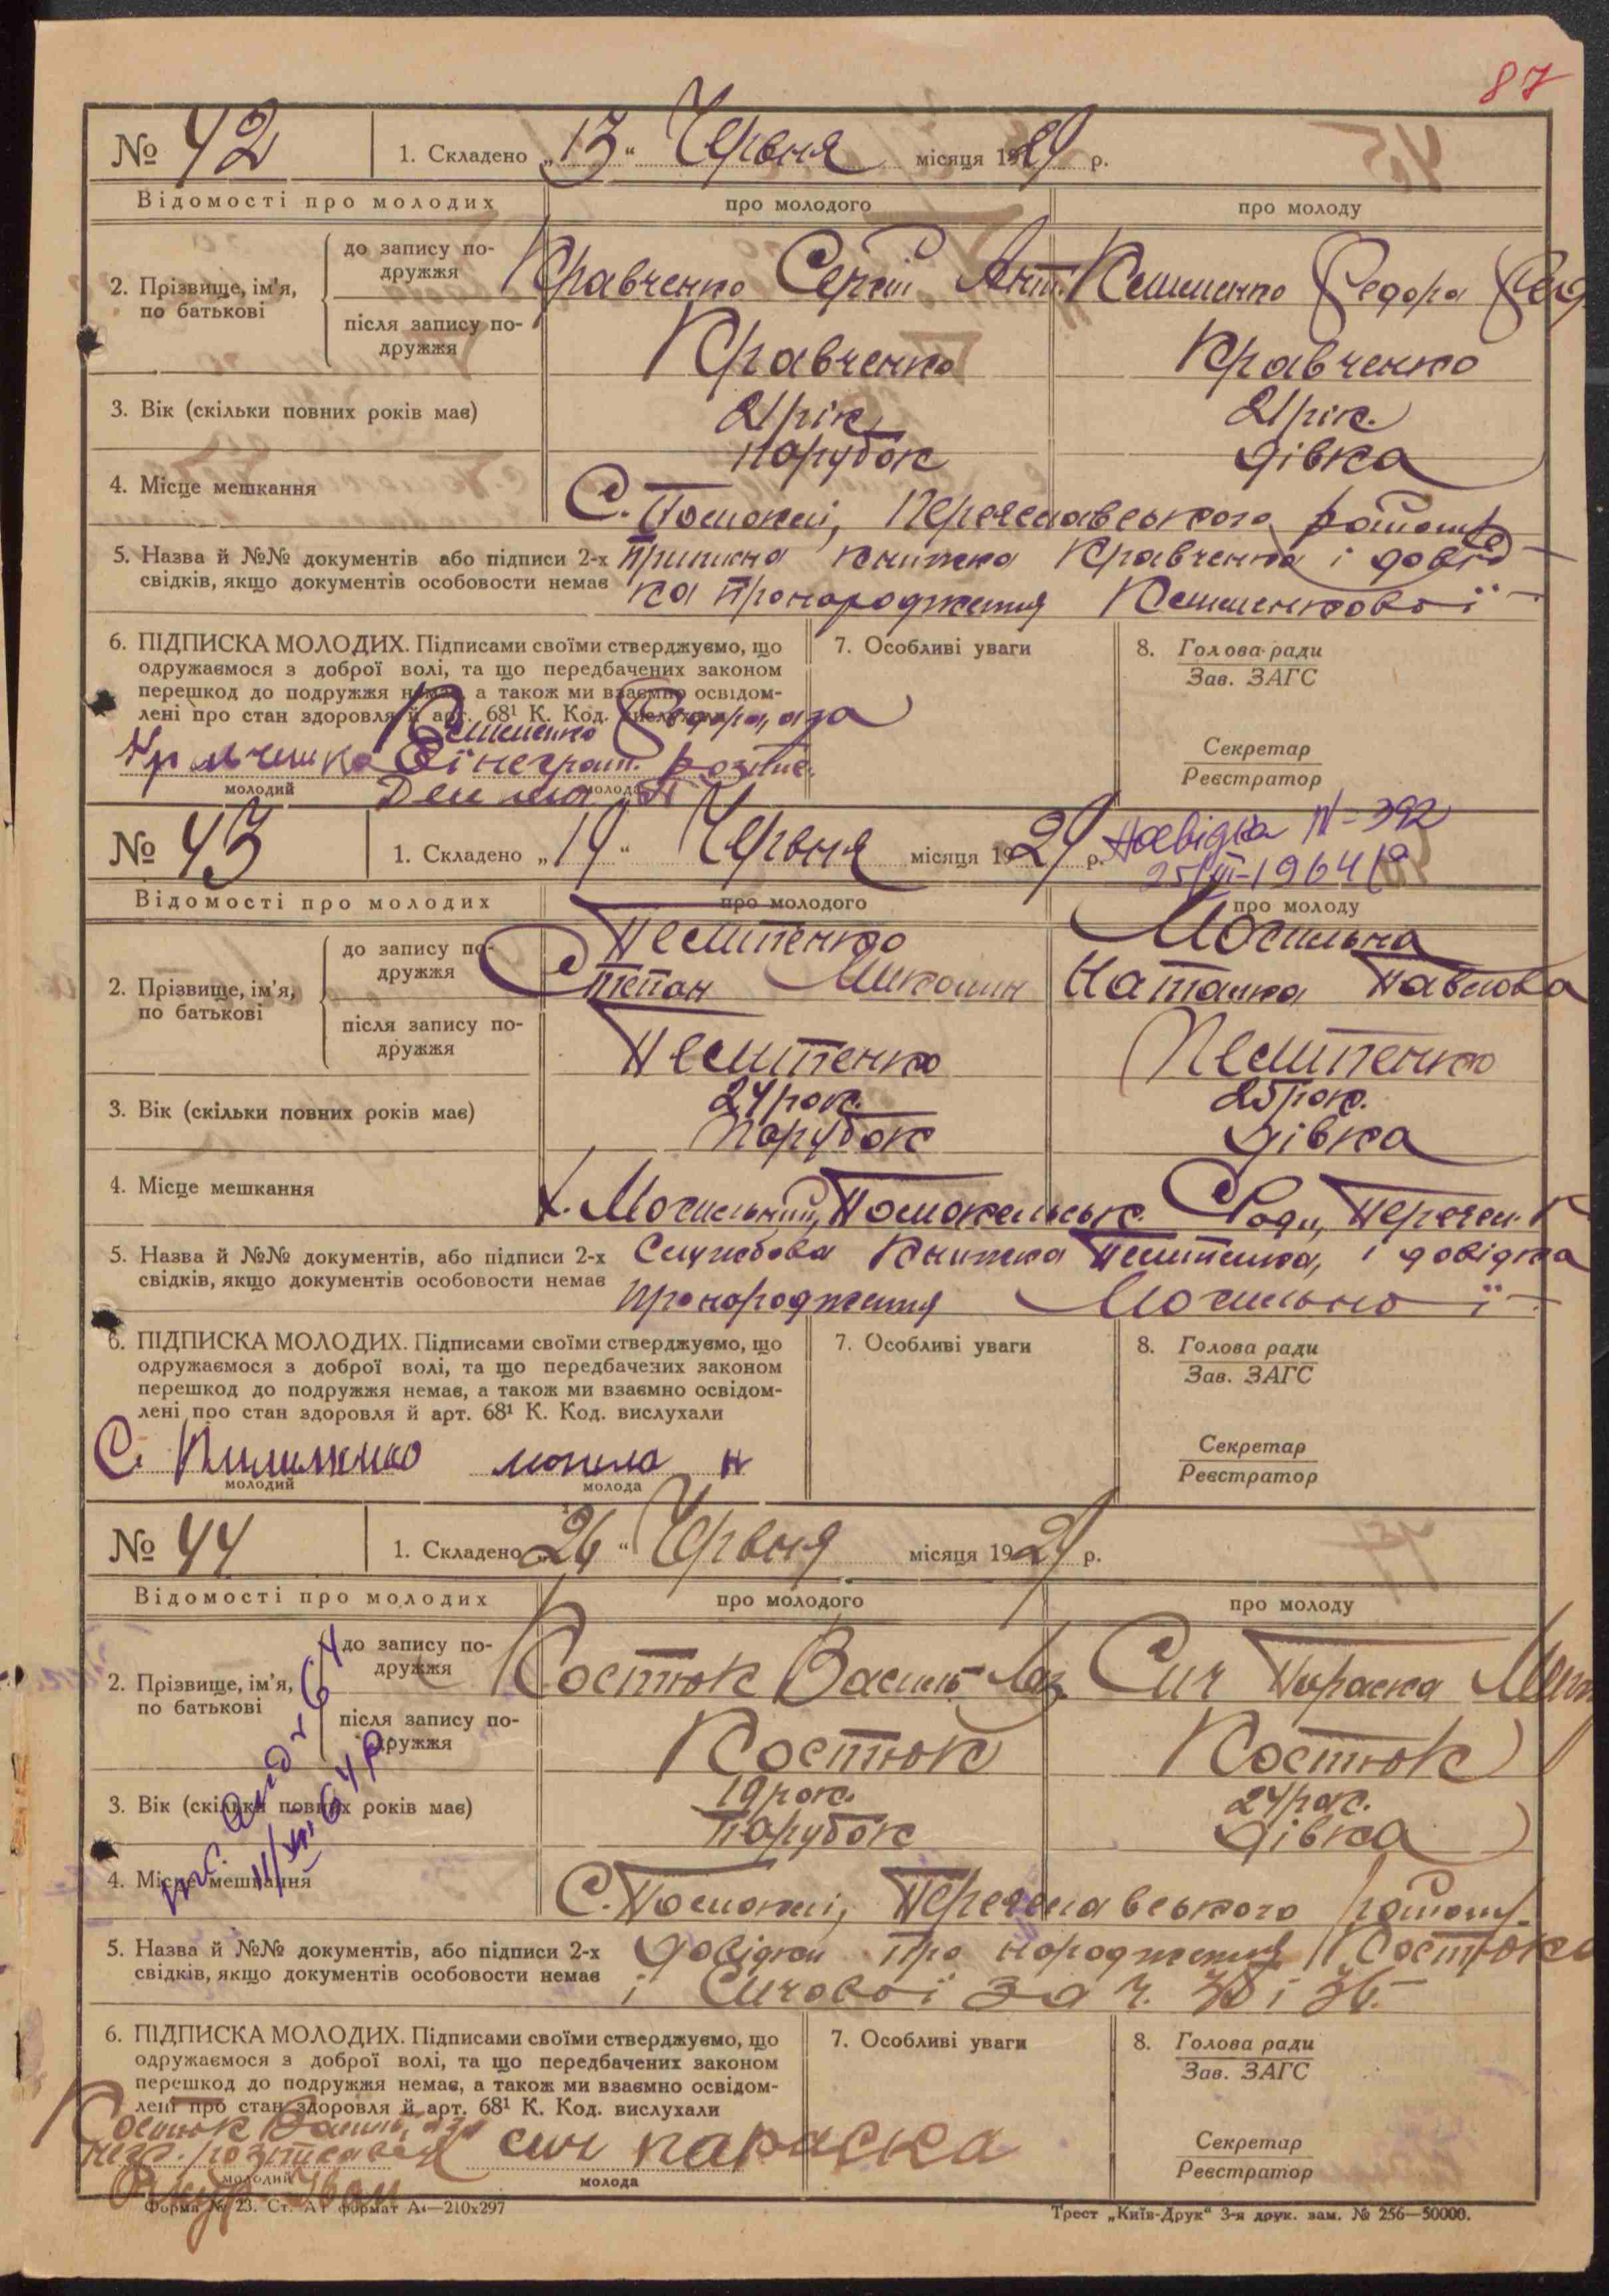 87
№ 42 1. Складено „13“ Червня місяця 1929 р.
Відомості про молодих про молодого про молоду
2. Прізвище, ім'я, по батькові
до запису подружжя Кравченко Сергій Ант. Клименко Федора Фед
після запису подружжя Кравченко Кравченко
3. Вік (скільки повних років має) 21 рік. 21 рік.
парубок дівка
4. Місце мешкання С. Помоклі, Переяславського району
5. Назва й №№ документів або підписи 2-х приписна книжка Кравченка і довід
свідків, якщо документів особовости немає ка про народження Клименкової
6. ПІДПИСКА МОЛОДИХ. Підписами своїми стверджуємо, що 7. Особливі уваги 8. Голова ради
одружаємося з доброї волі, та що передбачених законом Зав. ЗАГС
перешкод до подружжя немає, а також ми взаємно освідом-
лені про стан здоровля й арт. 68¹ К. Код. вислухали
Клименко Федора, а за
її неграм. розпис. Секретар
молодий молода Реєстратор
№ 43 1. Складено „19“ Червня місяця 1929 р. Довідка № 392
1964 р
Відомості про молодих про молодого про молоду
2. Прізвище, ім'я, по батькові
до запису подружжя Пилипенко Могильна
Степан Миколин Наталка Павлова
після запису подружжя Пилипенко Пилипенко
3. Вік (скільки повних років має) 24 рок. 25 рок.
парубок дівка
4. Місце мешкання х. Могильний, Помокельськ. С/Ради, Переясл.
5. Назва й №№ документів, або підписи 2-х Службова книжка Пилипенка, і довідка
свідків, якщо документів особовости немає про народження Могильної
6. ПІДПИСКА МОЛОДИХ. Підписами своїми стверджуємо, що 7. Особливі уваги 8. Голова ради
одружаємося з доброї волі, та що передбачених законом Зав. ЗАГС
перешкод до подружжя немає, а також ми взаємно освідом-
лені про стан здоровля й арт. 68¹ К. Код. вислухали
С. Пилипенко могила Н Секретар
молодий молода Реєстратор
№ 44 1. Складено „26“ Червня місяця 1929 р.
Відомості про молодих про молодого про молоду
2. Прізвище, ім'я, по батькові
до запису подружжя Костюк Василь Лаз. Сич Параска
після запису подружжя Костюк Костюк
3. Вік (скільки повних років має) 19 рок. 24 рок.
парубок дівка
4. Місце мешкання С. Помоклі, Переяславського району.
5. Назва й №№ документів, або підписи 2-х довідки про народження Костюка
свідків, якщо документів особовости немає і Сичової за ч. 38 і 36.
6. ПІДПИСКА МОЛОДИХ. Підписами своїми стверджуємо, що 7. Особливі уваги 8. Голова ради
одружаємося з доброї волі, та що передбачених законом Зав. ЗАГС
перешкод до подружжя немає, а також ми взаємно освідом-
лені про стан здоровля й арт. 68¹ К. Код. вислухали
Костюк Василь, а за
негр. розписався сич параска Секретар
молодий молода Реєстратор
Іван
Форма № 23. Ст. А1 формат А4—210х297 Трест „Київ-Друк“ 3-я друк. зам. № 256—50000.